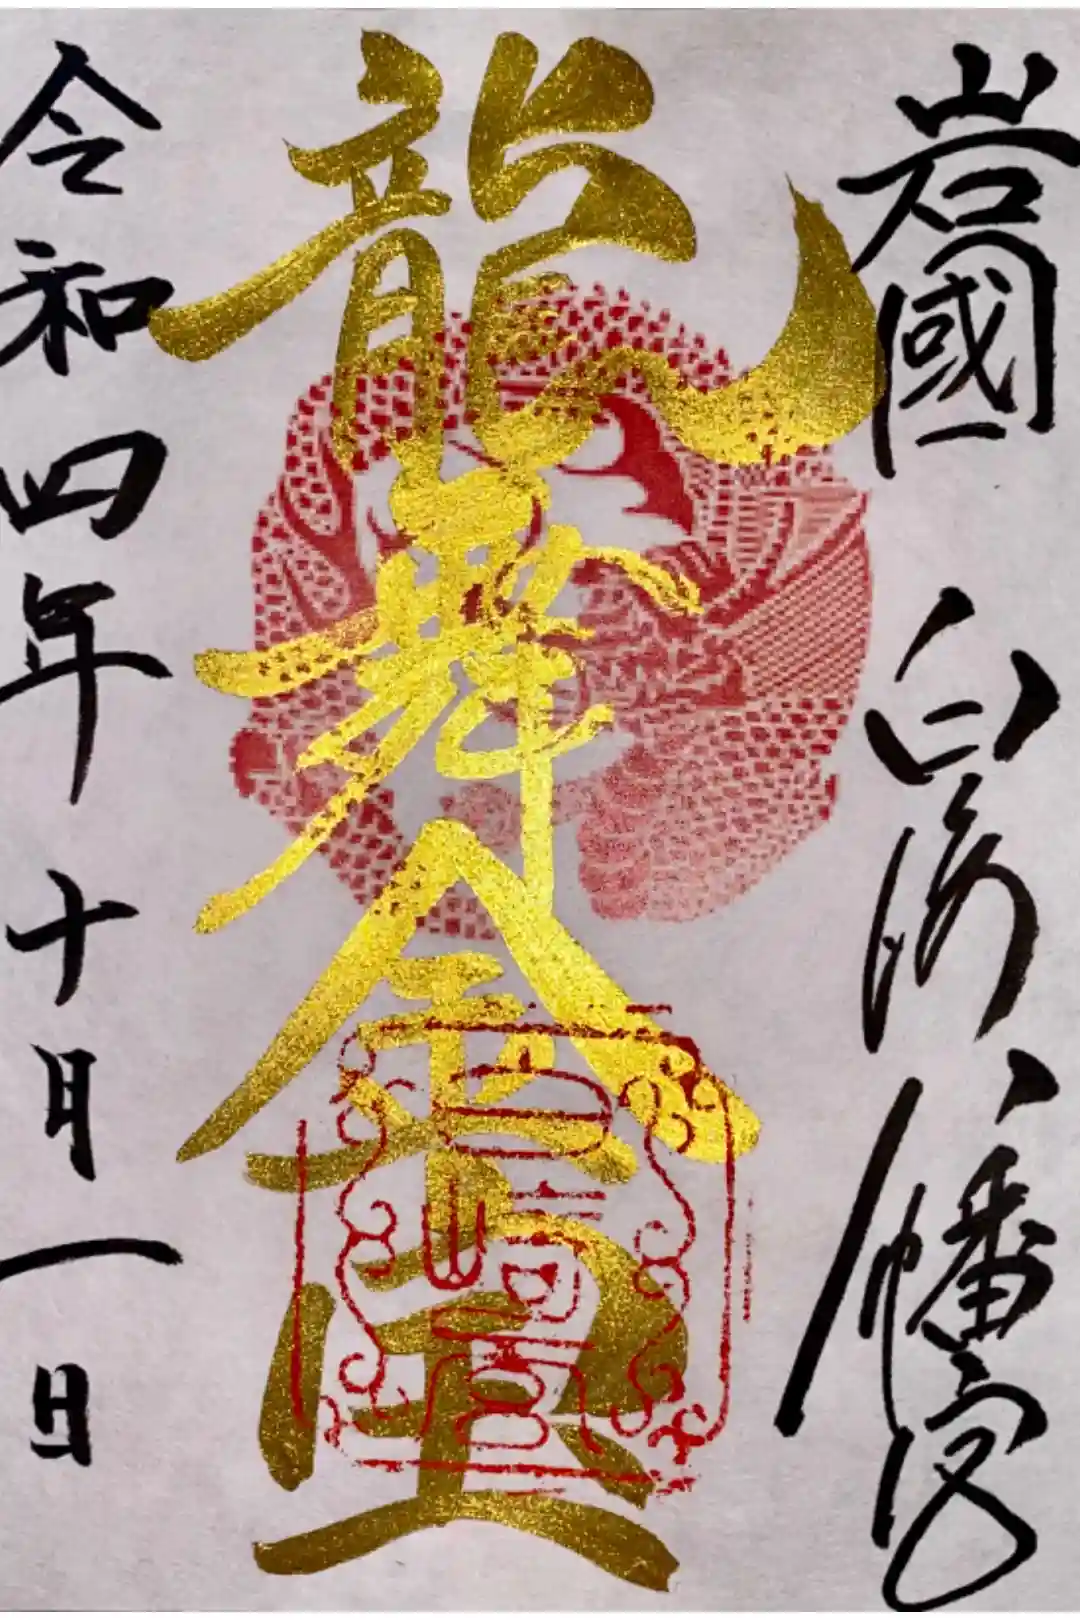 岩國 白崎八幡宮
龍舞金宝
令和四年十月一日